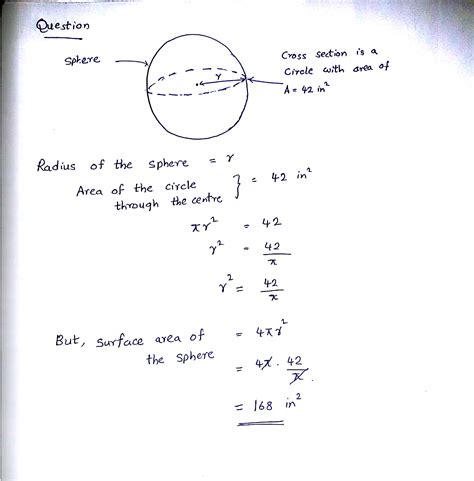 Question
Sphere
r
Cross section is a
Circle with area of
A = 42 in²
Radius of the sphere = r
Area of the circle
through the centre } = 42 in²
πr² = 42
r² = 42/π
r² = 42/π
But, surface area of
the sphere = 4πr²
= 4π · 42/π.
= 168 in²